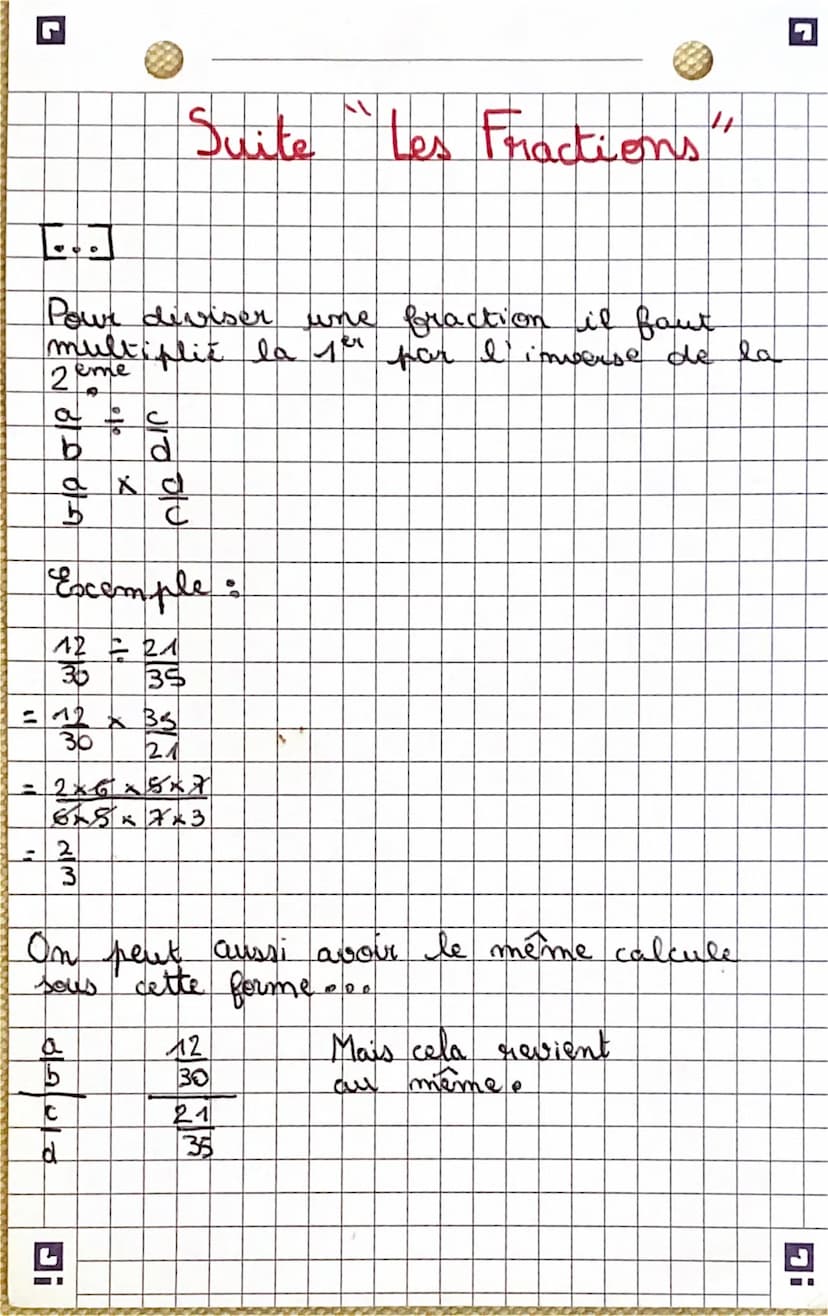 Suite "Les Fractions"
[...]
Pour diviser une fraction il faut
multiplié la 1er par l'inverse de la
2ème.
a/b ÷ c/d
a/b × d/c
Exemple :
12/30 ÷ 21/35
= 12/30 × 35/21
= 2×6×5×7/6×5×7×3
= 2/3
On peut aussi avoir le même calcule
sous cette forme...
a/b / c/d 12/30 / 21/35 Mais cela revient
au même.